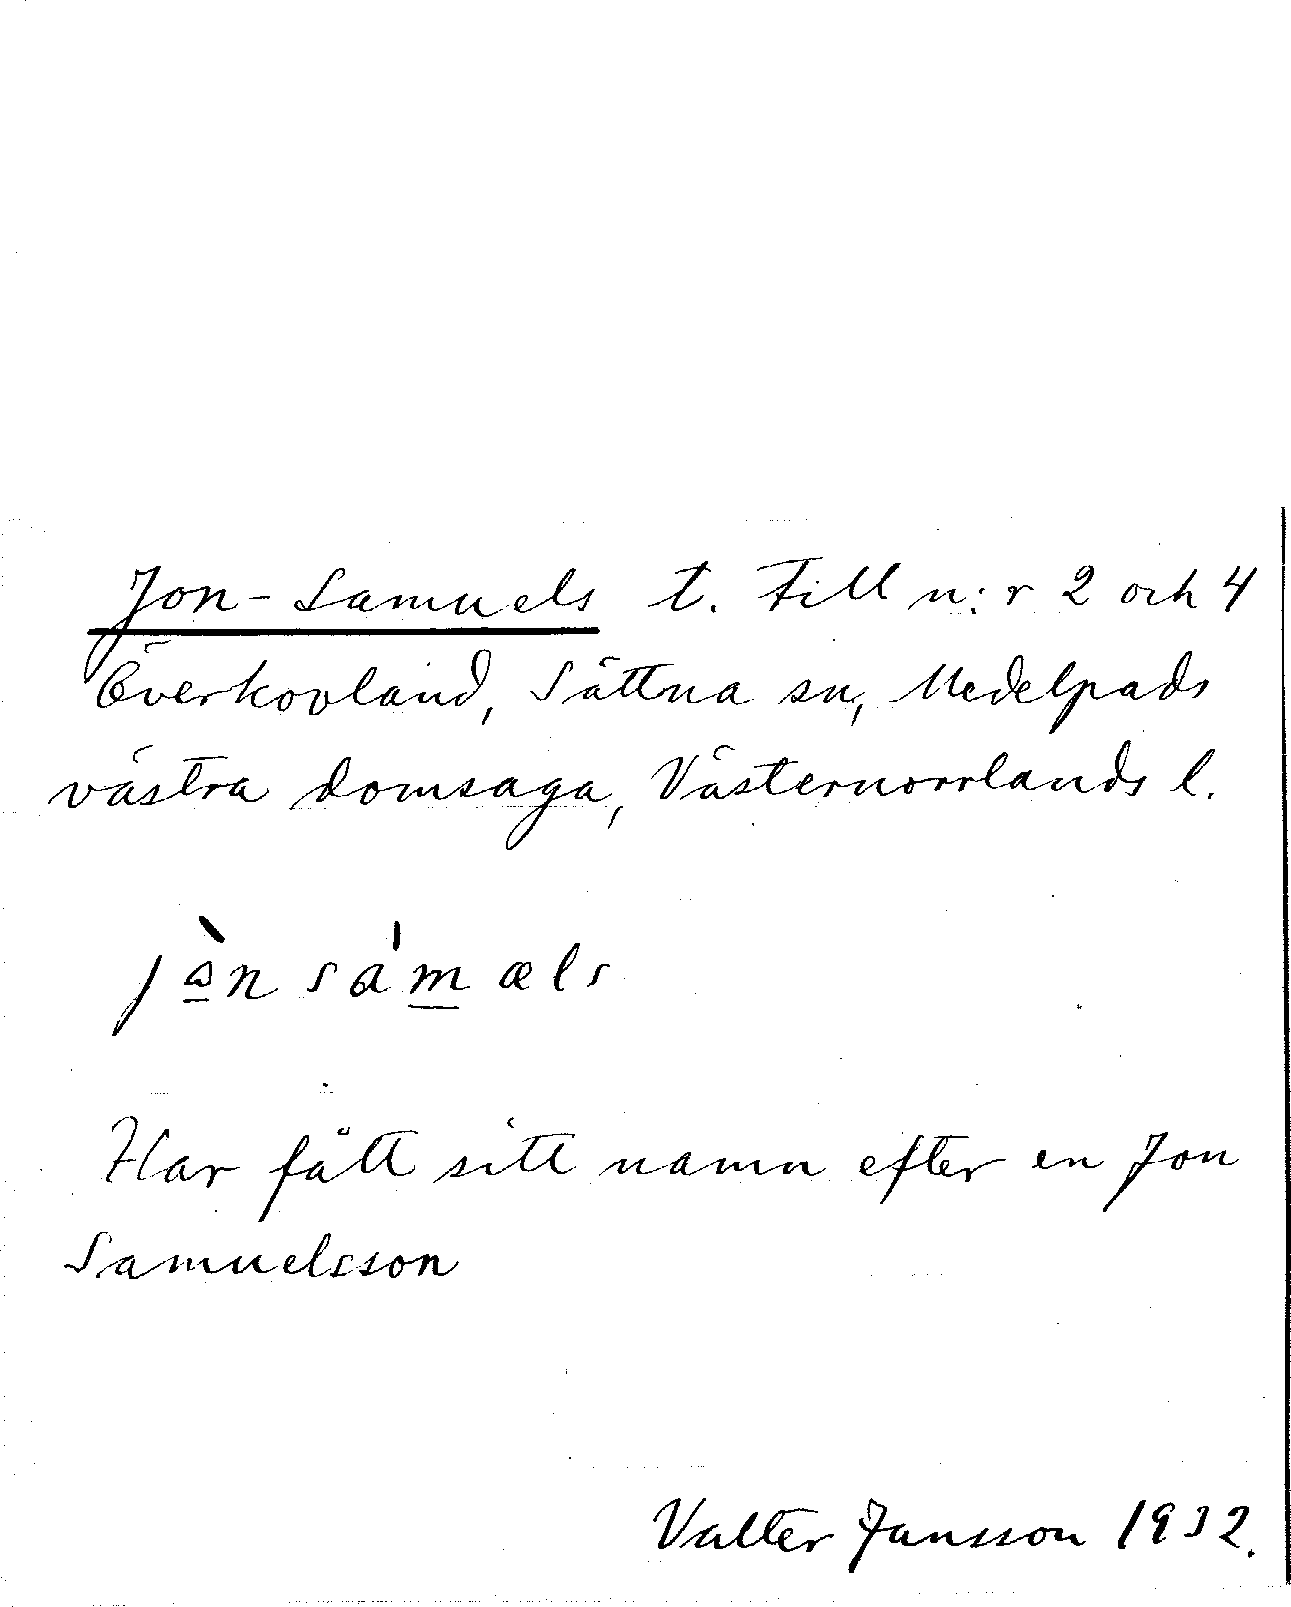 Jon-Samuels t. till n:r 2 och 4
Överkovland, Sättna sn, Medelpads
västra domsaga, Västernorrlands l.
jòn sámæls
Har fått sitt namn efter en Jon
Samuelsson
Valter Jansson 1932.